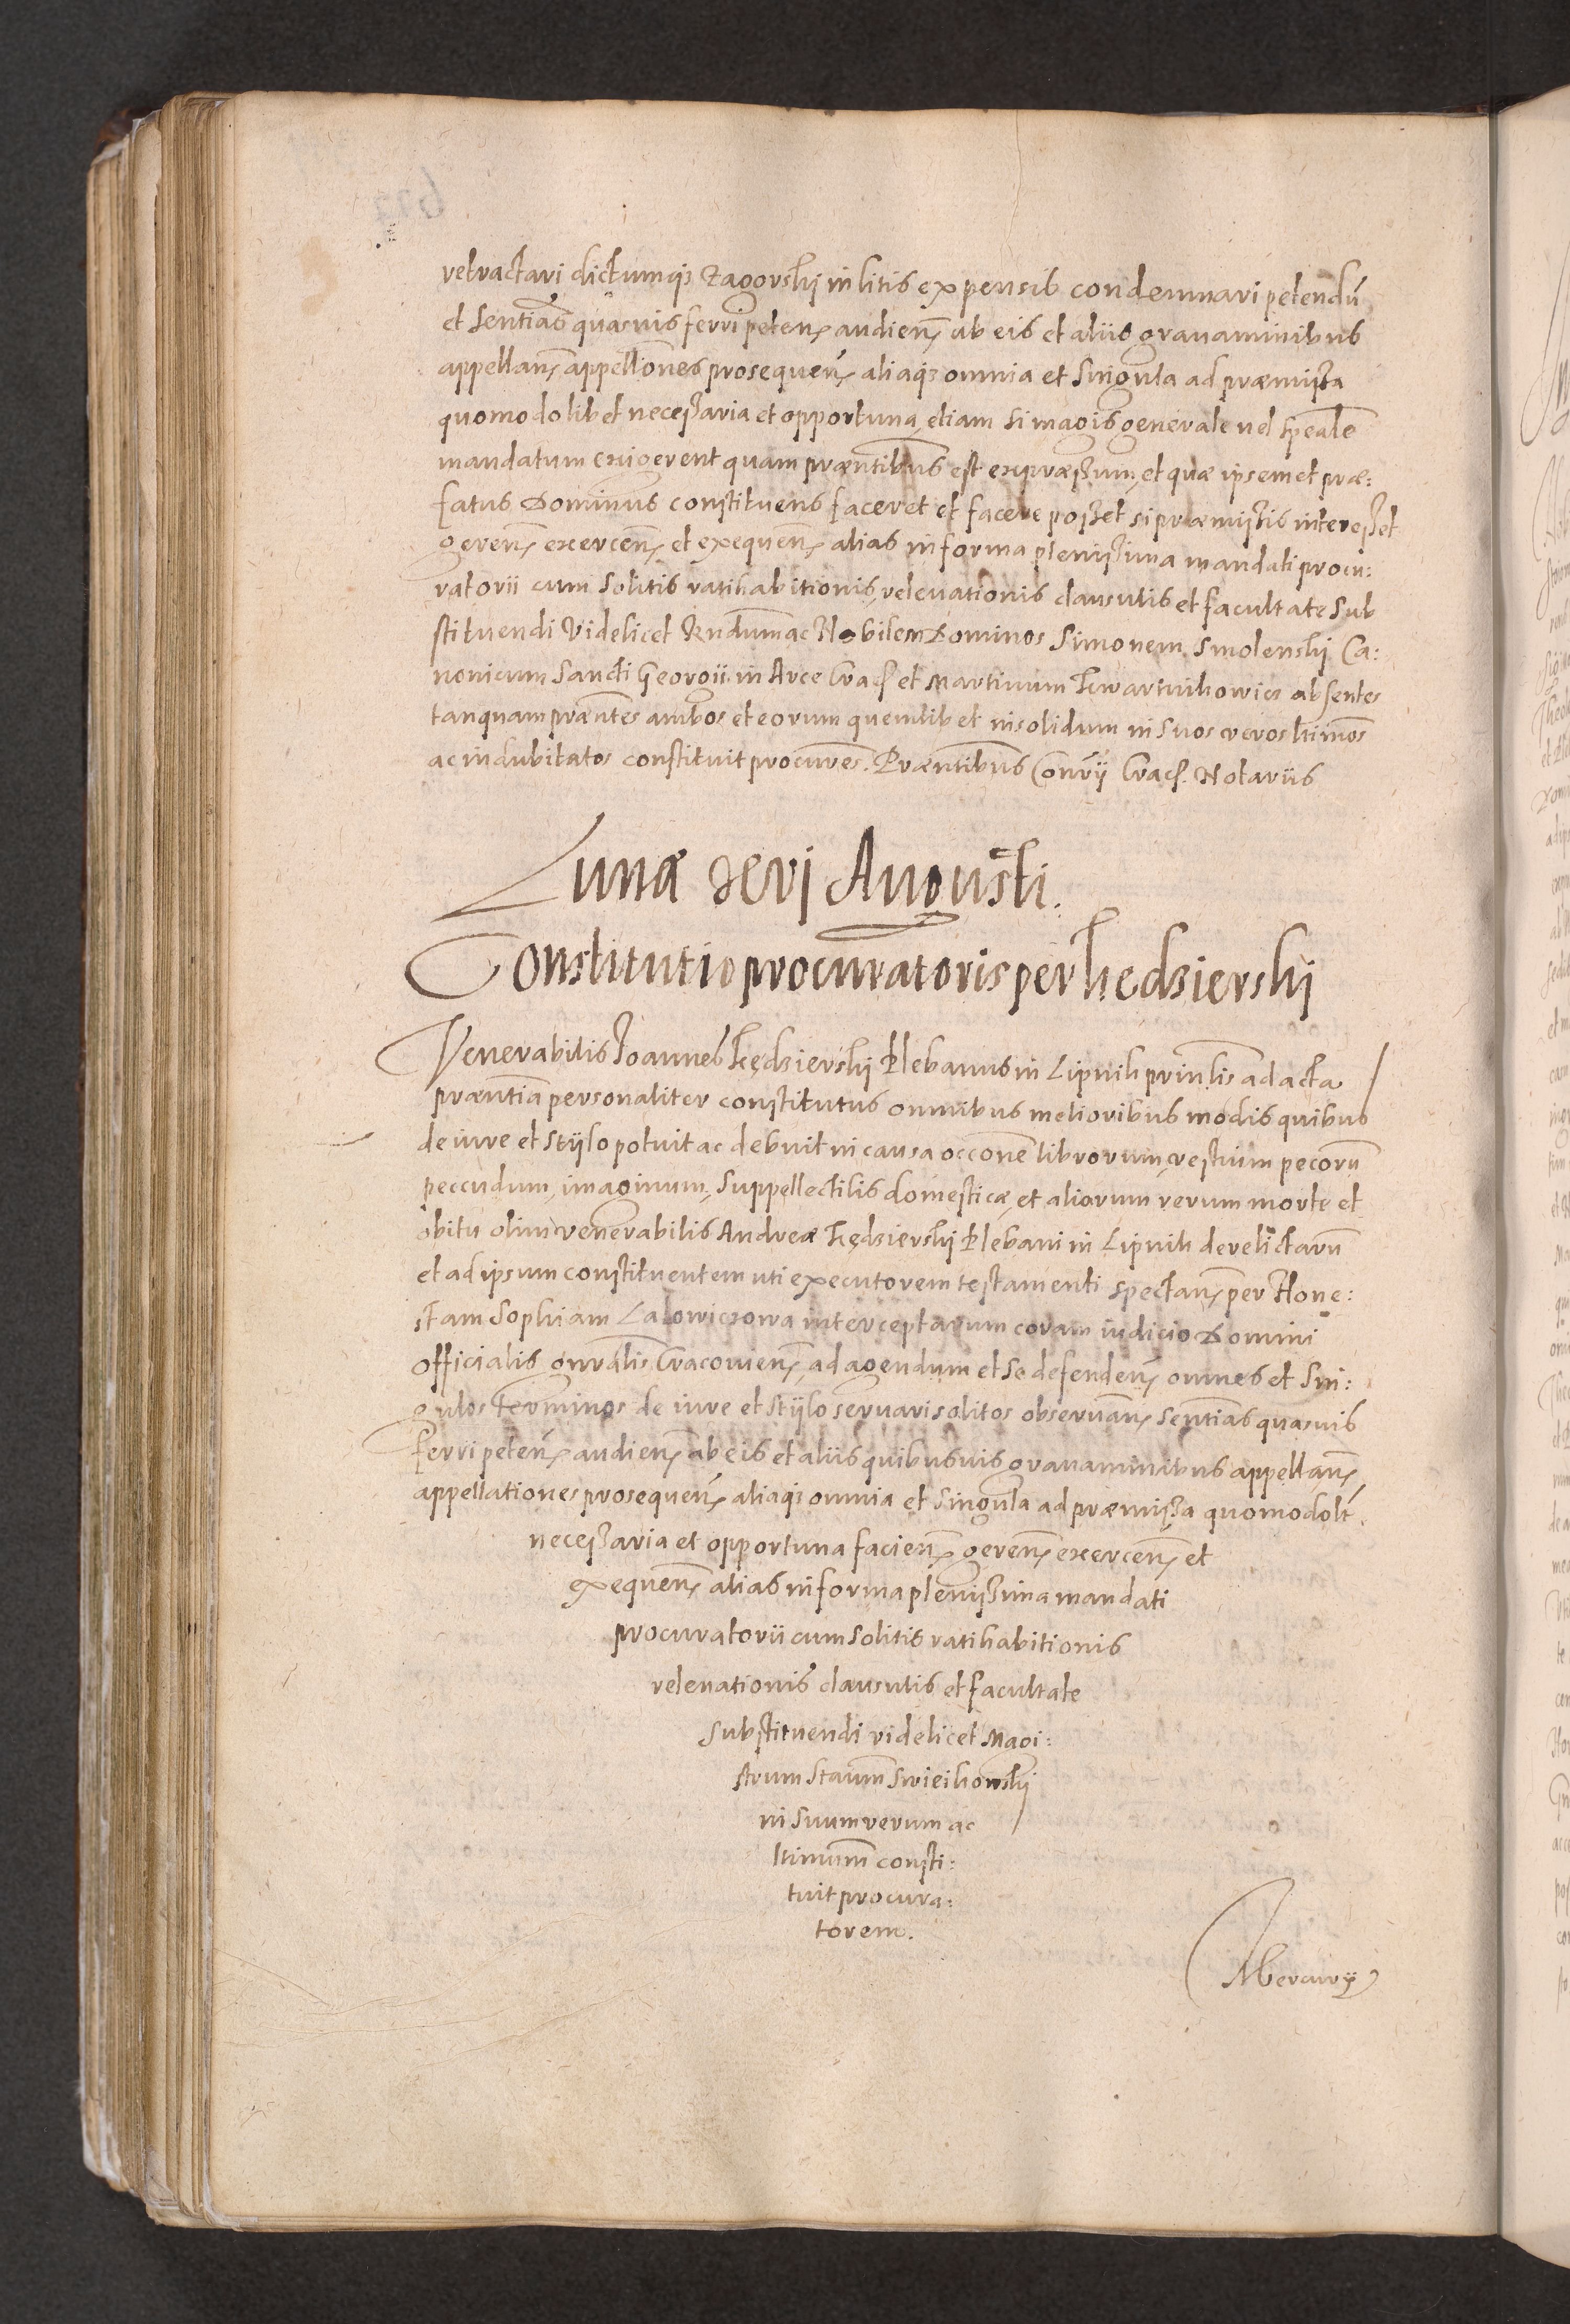 retractari dictumq; Zagorski in litis expensis condemnari petendū
et sentias quasuis ferri peten audien ab eis et aliis grauaminibus
appellan appellones prosequen aliaq; omnia et singula ad præmissa
quomodolibet necessaria et opportuna, etiam si magis generale uel speale
mandatum exigerent quam præntibus est expræssum, et quæ ipsemet præ:
fatus Dominus constituens faceret et facere posset si præmissis interesset
geren exercen et exequen alias in forma plenissima mandati procu:
ratorii cum solitis ratihabitionis, releuationis clausulis et facultate sub
stituendi Videlicet Rndum ac Nobilem Dominos Simonem Smolenski Ca:
nonicum Sancti Georgii in Arce Crac et Martinum Kwartnikowicz absentes
tanquam præntes ambos et eorum quemlibet in solidum in suos veros ltimos
ac indubitatos constituit procures. Præntibus Consrij Crac. Notariis
Lunæ xxvj Augusti.
Constitutio procuratoris per Kedzierski
Venerabilis Joannes Kędzierski Plebanus in Lipnik prinlis ad acta
præntia personaliter constitutus omnibus melioribus modis quibus
de iure et stijlo potuit ac debuit in causa occone librorum, vestium pecorū
peccudum, imaginum, suppellectilis domesticæ, et aliarum rerum morte et
obitu olim venerabilis Andreæ Kędzierski Plebani in Lipnik derelictarū
et ad ipsum constituentem uti executorem testamenti spectan per Hone:
stam Sophiam Latowiczowa interceptarum coram iudicio Domini
Officialis gnralis Cracouien, ad agendum et se defenden omnes et sin:
gulos terminos de iure et stijlo seruari solitos obseruan sentias quasuis
ferri peten audien ab eis et aliis quibusuis grauaminibus appellan,
appellationes prosequen aliaq; omnia et singula ad præmissa quomodolt
necessaria et opportuna facien geren exercen et
exequen alias in forma plenissima mandati
procuratorii cum solitis ratihabitionis
releuationis clausulis et facultate
substituendi videlicet Magi:
strum Staum Swieikowski
in suum verum ac
ltimum consti:
tuit procura:
torem.
Mercurij